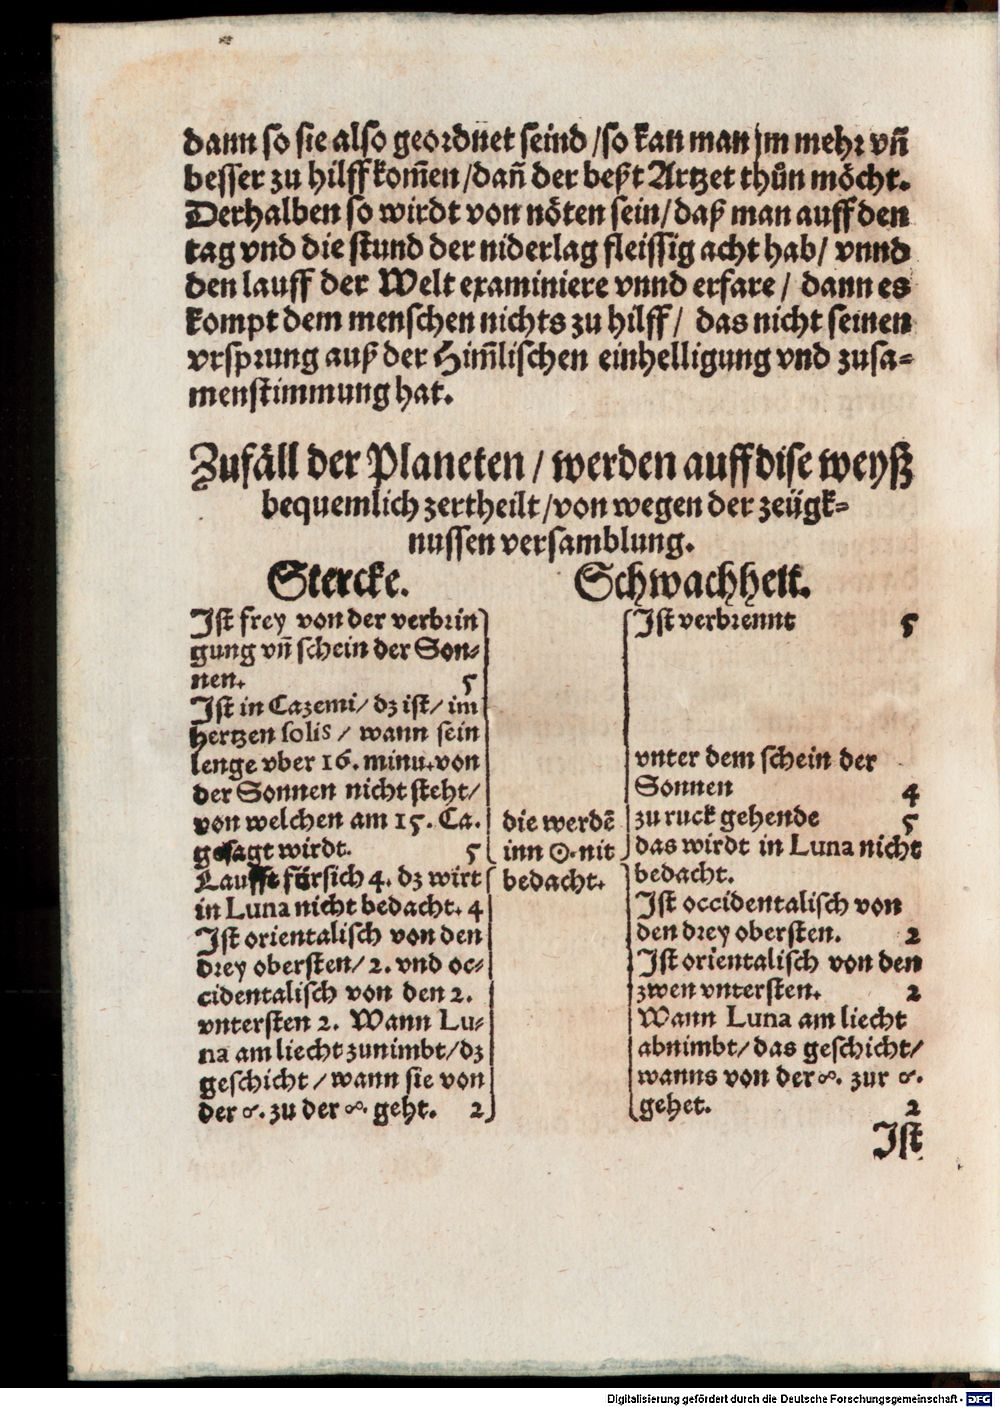 dann so sie also geordnet seind /so kan man jm mehr vñ
besser zu hilff kom̃en /dañ der beßt Artzet thůn möcht.
Derhalben so wirdt von nöten sein/daß man auff den
tag vnd die stund der niderlag fleissig acht hab/ vnnd
den lauff der Welt examiniere vnnd erfare / dann es
kompt dem menschen nichts zu hilff/ das nicht seinen
vrsprung auß der Him̃lischen einhelligung vnd zusa-
menstimmung hat.
Zufäll der Planeten / werden auff dise weyß
bequemlich zertheilt /von wegen der zeügk-
nussen versamblung.
Stercke.
Ist frey von der verbrin
gung vñ schein der Son-
nen. 5
Ist in Cazemi/ dz ist/ im
hertzen solis / wann sein
lenge vber 16. minu. von
der Sonnen nicht steht/
von welchen am 15. Ca.
gesagt wirdt. 5
Laufft fürsich 4. dz wirt
in Luna nicht bedacht. 4
Ist orientalisch von den
drey obersten/ 2. vnd oc-
cidentalisch von den 2.
vntersten 2. Wann Lu-
na am liecht zunimbt/dz
geschicht / wann sie von
der ☌. zu der ☍. geht. 2
die werdẽ
inn ☉. nit
bedacht.
Schwachheit.
Ist verbrennt 5
vnter dem schein der
Sonnen 4
zu ruck gehende 5
das wirdt in Luna nicht
bedacht.
Ist occidentalisch von
den drey obersten. 2
Ist orientalisch von den
zwen vntersten. 2
Wann Luna am liecht
abnimbt/das geschicht/
wanns von der ☍. zur ☌.
gehet. 2
Ist
Digitalisierung gefördert durch die Deutsche Forschungsgemeinschaft - DFG